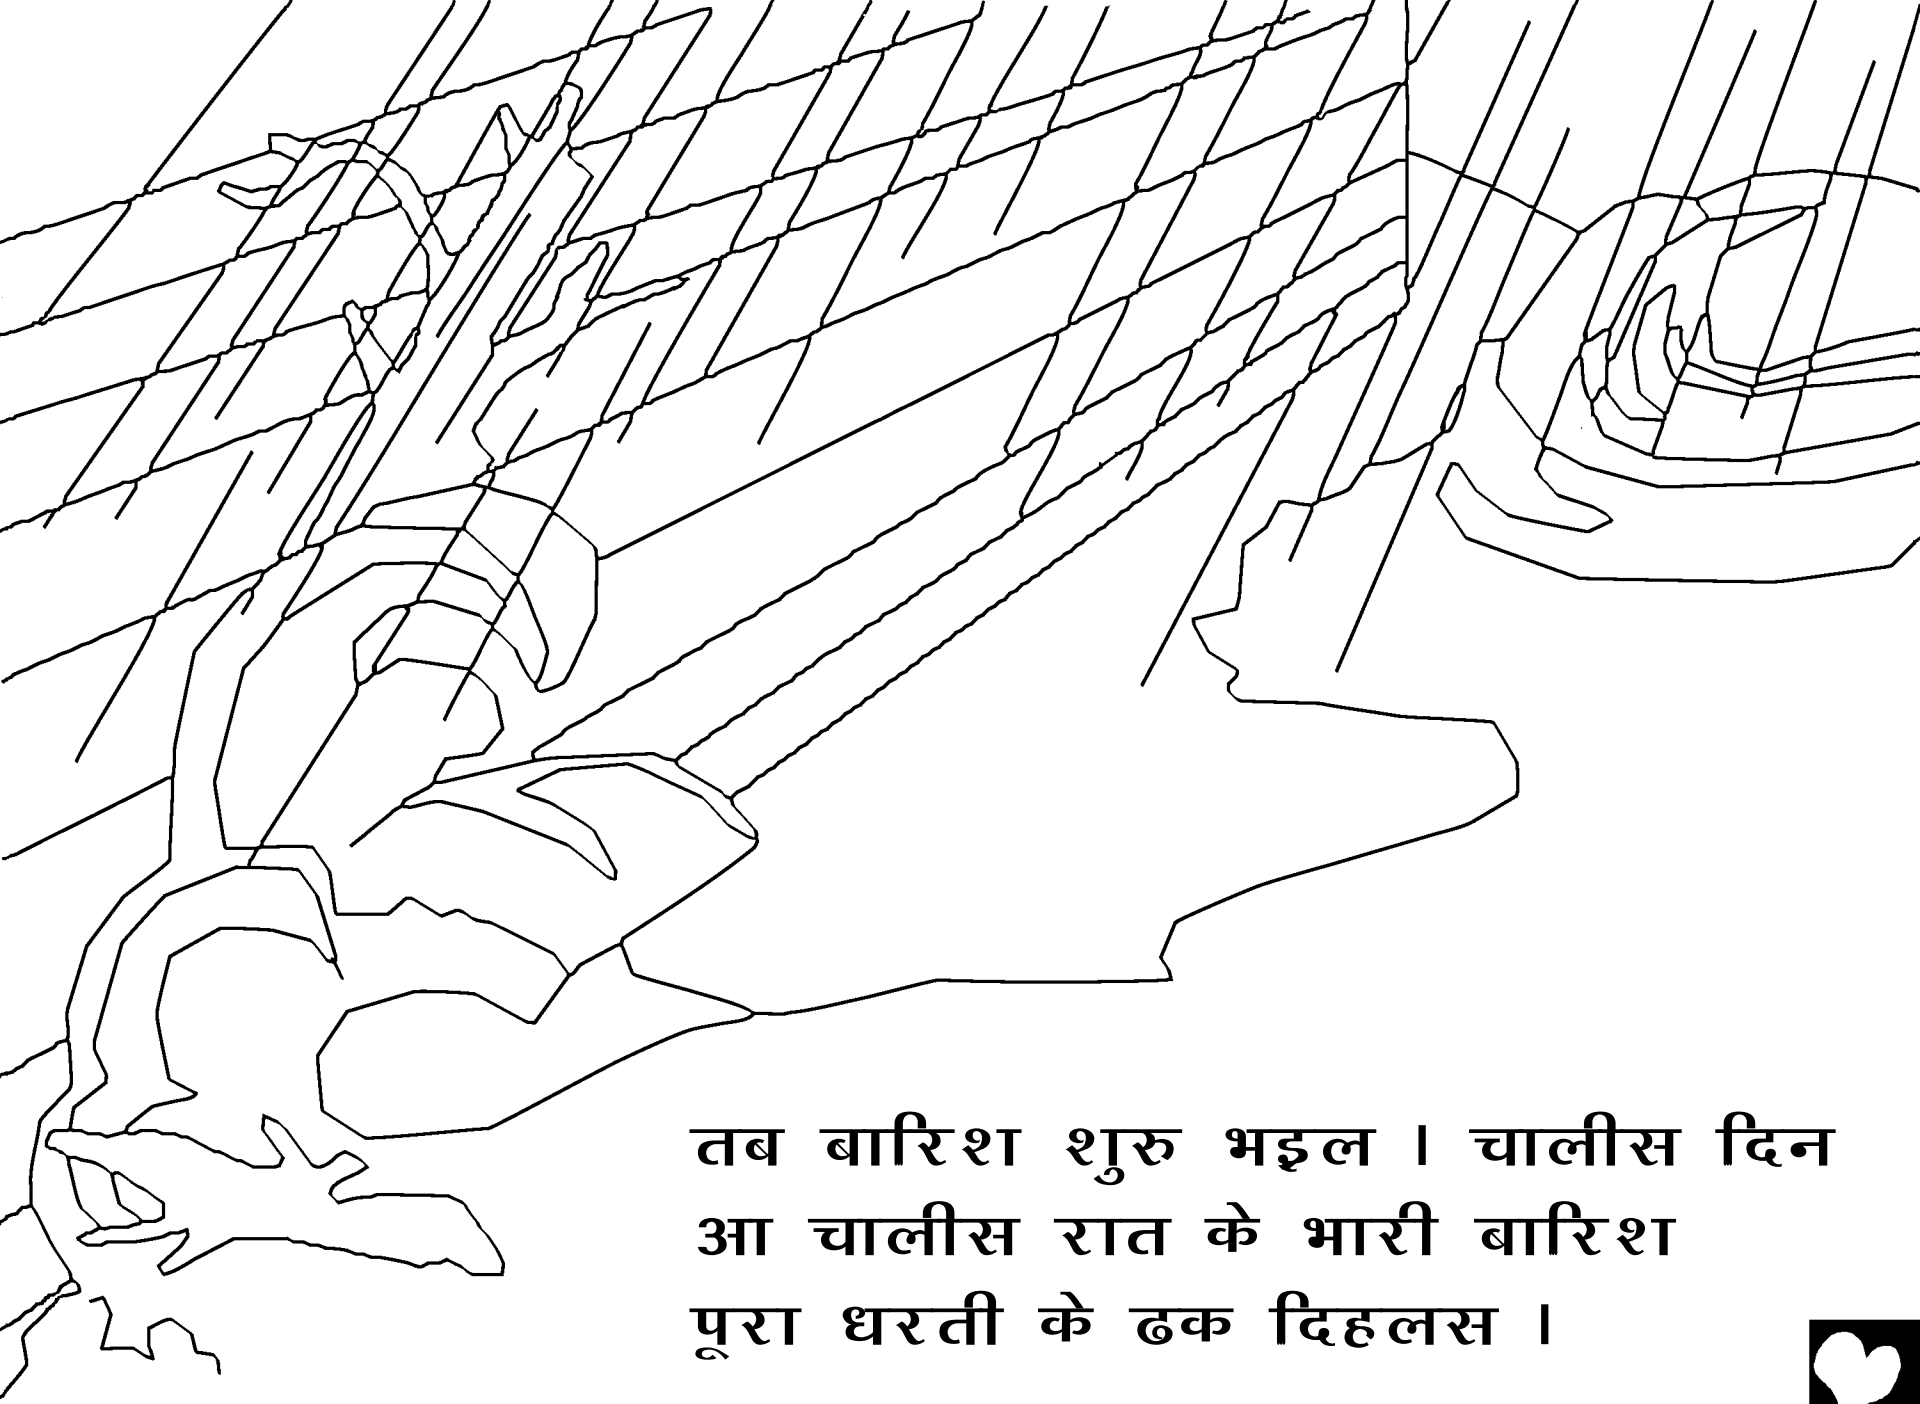 तब बारिश शुरु भइल । चालीस दिन
आ चालीस रात के भारी बारिश
पूरा धरती के ढक दिहलस ।